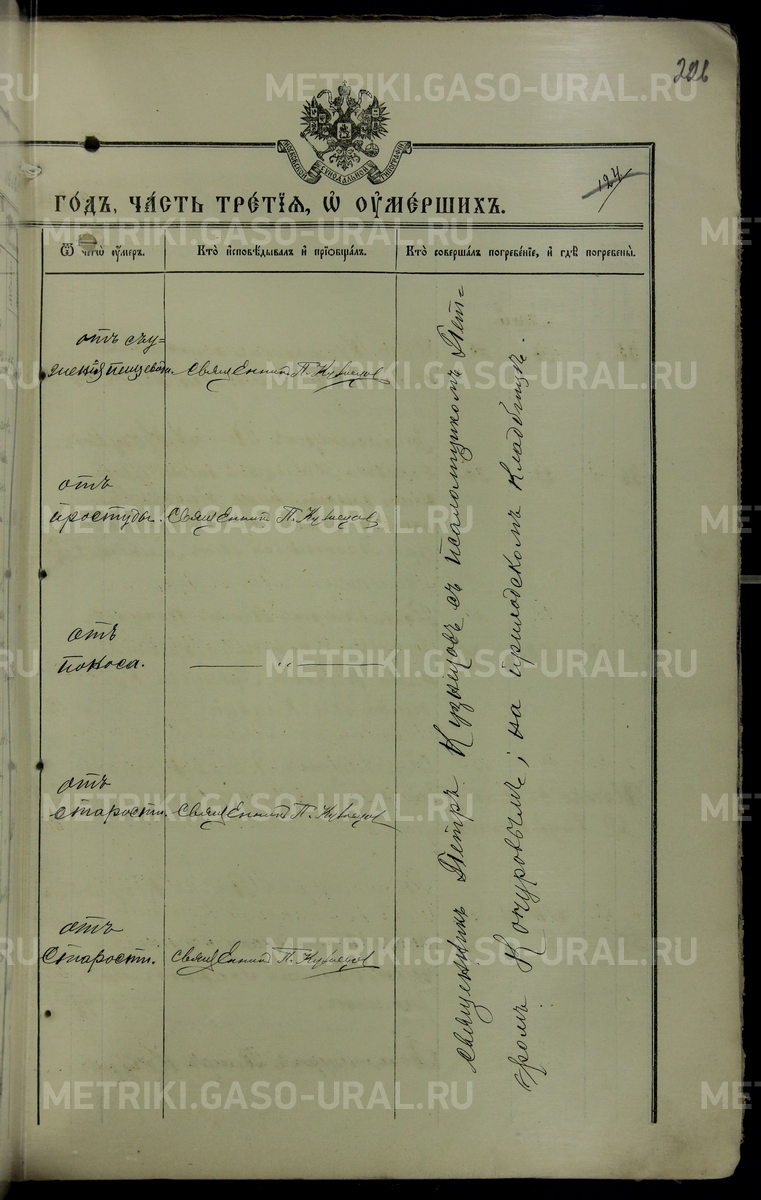 226
МОСКОВСКОЙ СѴНОДАЛЬНОЙ ТИПОГРАФІИ
124
ГО́ДЪ, ЧА́СТЬ ТРЕ́ТІѦ, Ѡ҆ ОУ҆МЕ́РШИХЪ.
Ѿ чегѡ̀ оу҆́меръ.
Кто̀ и҆сповѣ́дывалъ и҆ прїѡбща́лъ.
Кто̀ соверша́лъ погребе́нїе, и҆ гдѣ̀ погребены̀.
отъ съу-
женія пищевода.
Священникъ П. Кузнецов
отъ
простуды.
Священникъ П. Кузнецов
отъ
поноса.
— " —
отъ
старости.
Священникъ П. Кузнецов
отъ
старости.
Священникъ П. Кузнецов
Священникъ Петръ Кузнецовъ съ псаломщикомъ Пет-
ромъ Кочуровымъ; на приходскомъ кладбищѣ.
METRIKI.GASO-URAL.RU